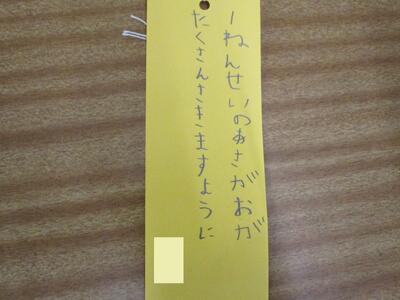 1ねんせいのあさがおが
たくさんさきますように